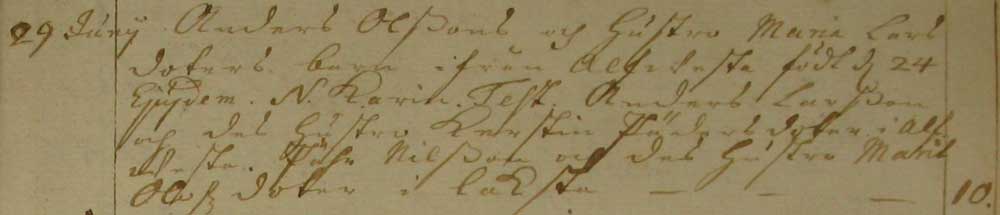 29 Juny Anders Olßons och Hustro Maria Lars
doters barn ifrån Alfvesta född d 24
Ejusdem. N. Karin. Test. Anders Larßon
och des Hustro Kerstin Pädersdoter i Alf-
vesta. Pähr Nilßon och des Hustro Marit
Olofz doter i Laksta — — — 10.